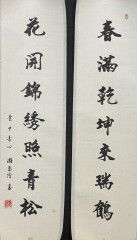 春滿乾坤來瑞鶴
花開錦綉照青松